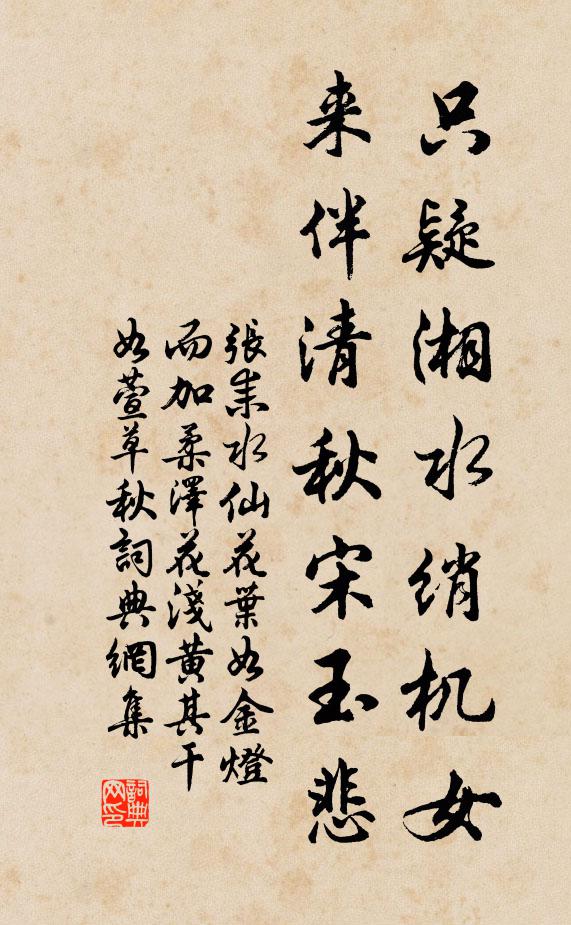 只疑湘水綃机女
来伴清秋宋玉悲
張耒水仙花葉如金燈
而加柔澤花淺黃其干
如萱草秋詞典網集
詞典网印